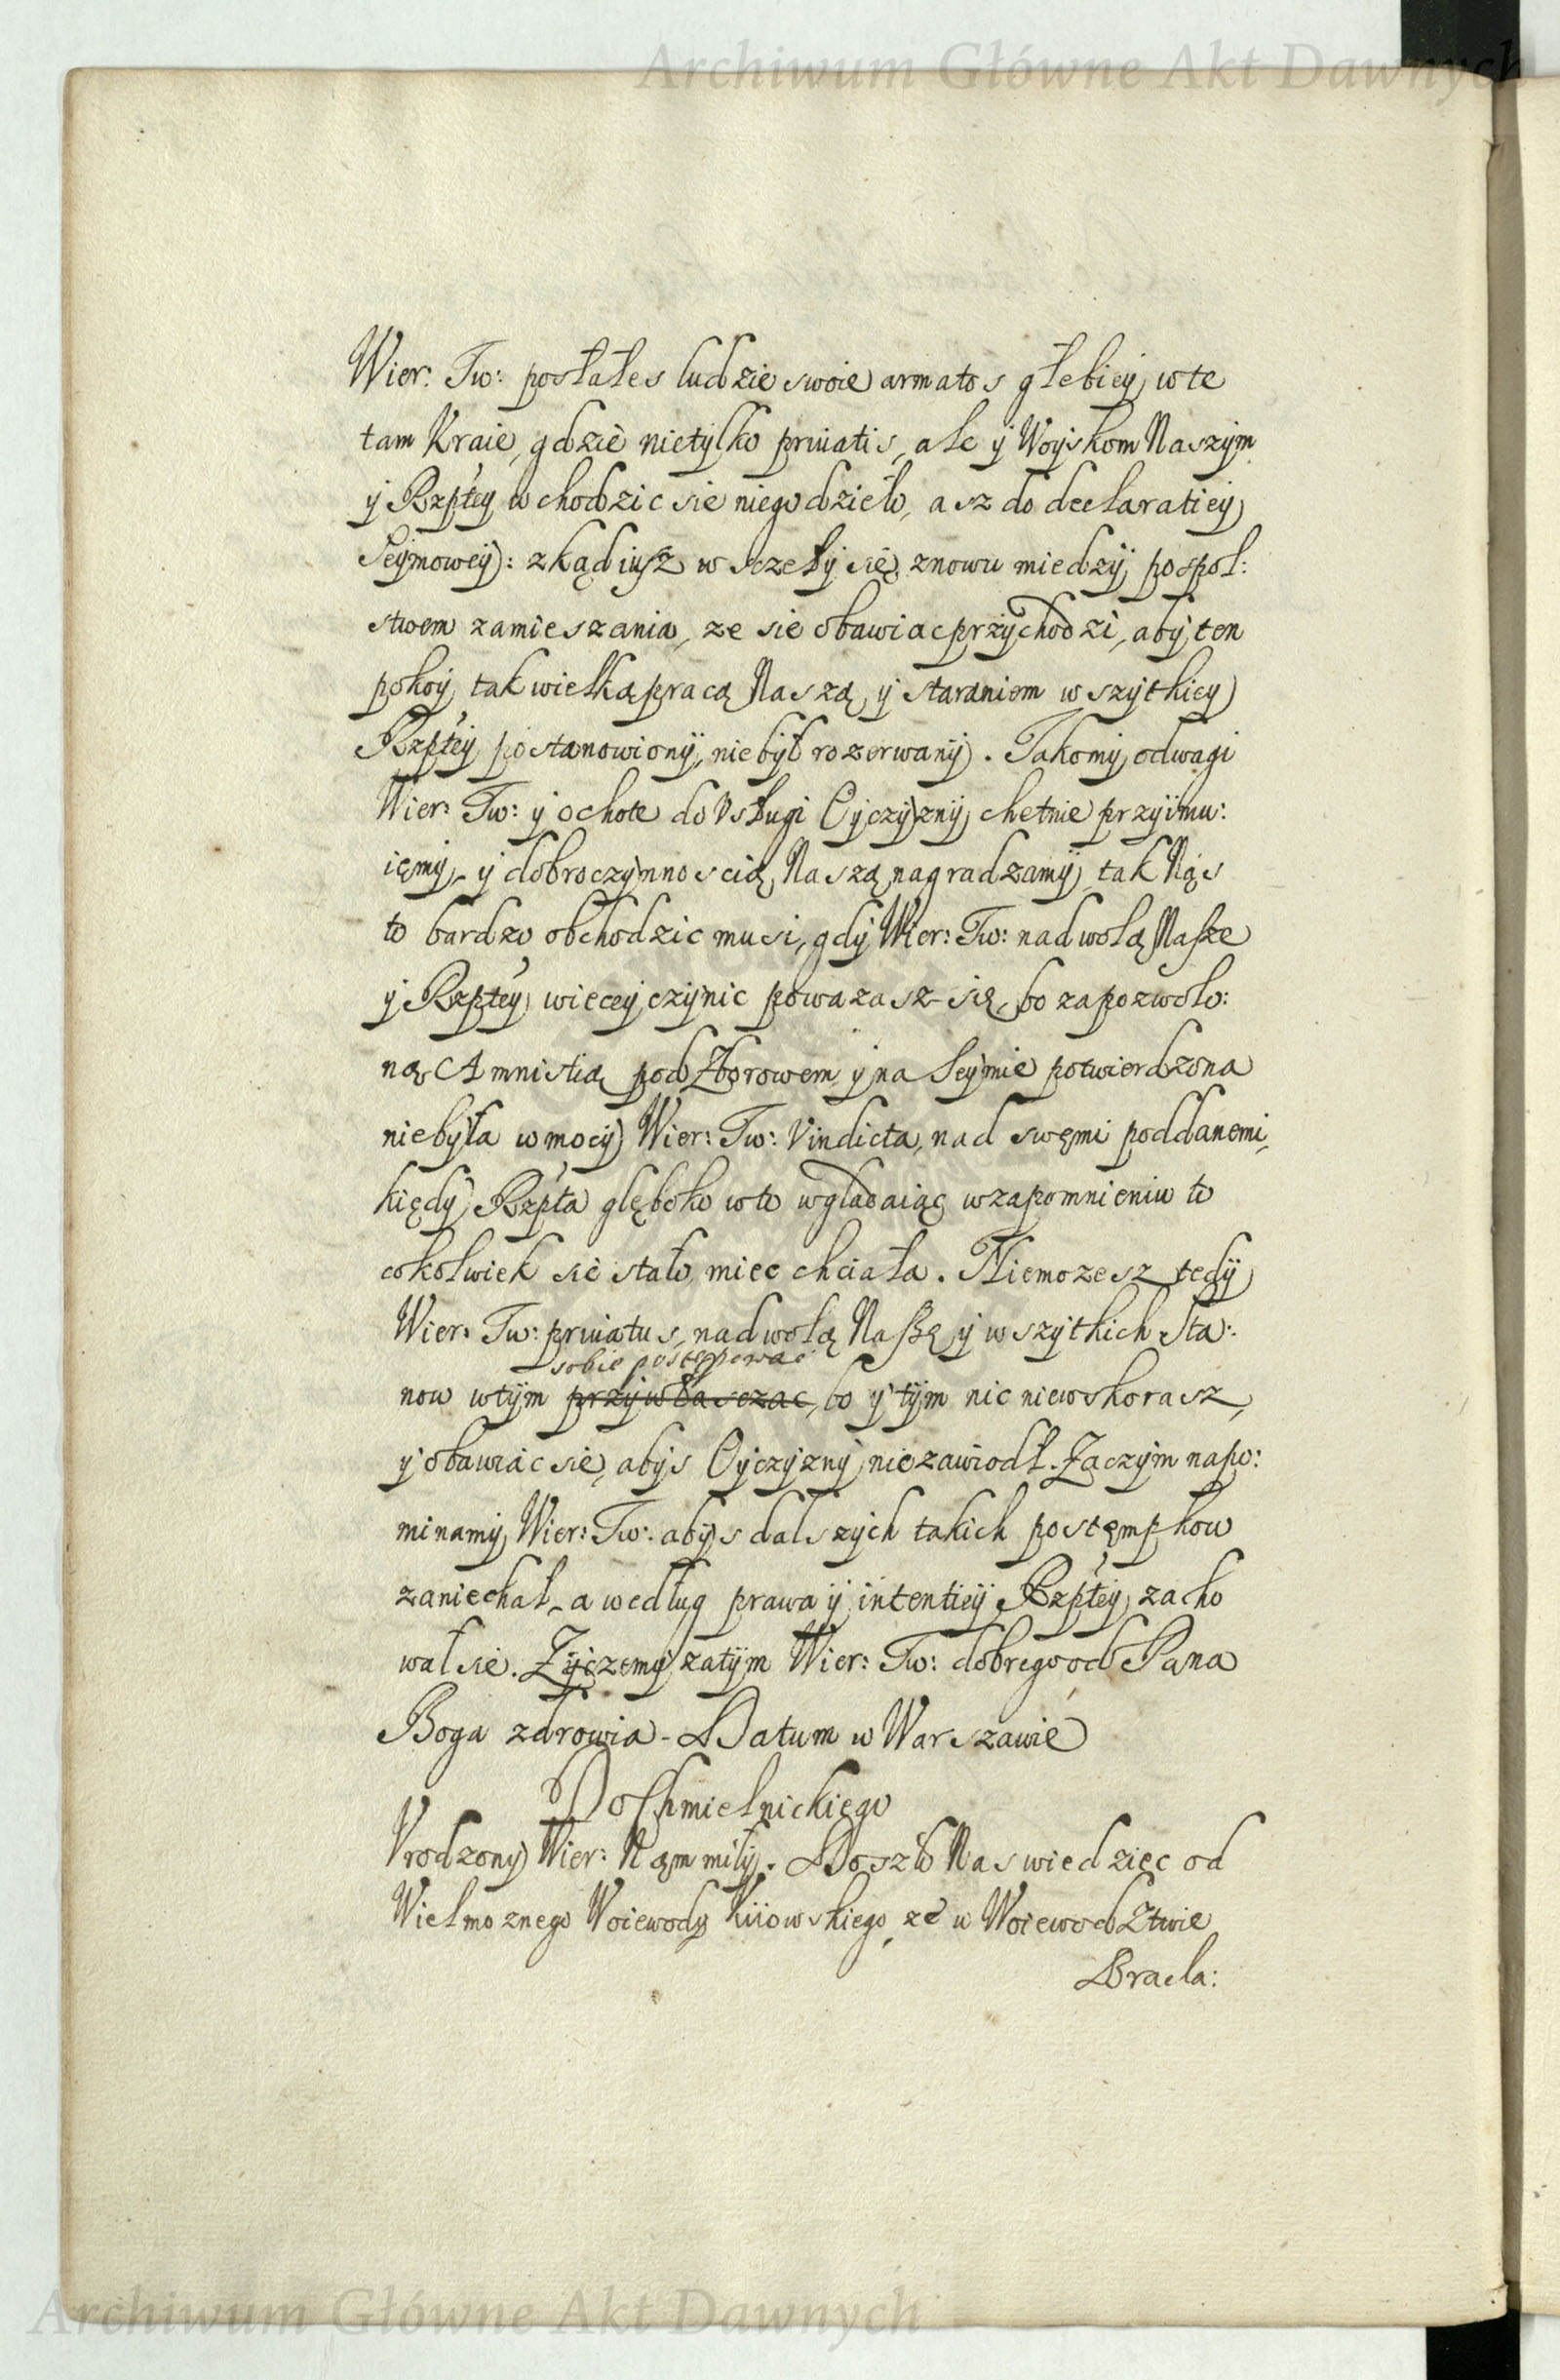 Archiwum Główne Akt Dawnych
Wier: Tw: posłałes ludzie swoie armatos głebiey w te
tam Kraie, gdzie nietylko priuatis, ale y Woyskom Naszym
y Rzptey wchodzic sie niegodzieło, asz do declaratiey
Seymowey: zkąd iusz wsczeły się znowu miedzy pospol:
stwem zamieszania, ze sie obawiac przychodzi, aby ten
pokoy tak wielką pracą Naszą y staraniem wszytkiey
Rzptey postanowiony, niebył rozerwany. Jakomy odwagi
Wier: Tw: y ochote do Vsługi Oyczyzny chetnie przyimu:
ięmy, y dobroczynnoscią Naszą nagradzamy tak Nąs
to bardzo obchodzic musi, gdy Wier: Tw: nad wolą Nasze
y Rzptey wiecey czynic powazasz się, bo za pozwolo:
ną Amnistią pod Zborowem y na Seymie potwierdzona
niebyła w mocy Wier: Tw: Vindicta, nad swęmi poddanemi,
kiędy Rzpta głęboko w to wgladaiąc w zapomnieniu to
cokolwiek sie stało miec chciała. Niemozesz tedy
Wier: Tw: priuatus, nad wolą Naszę y wszytkich Sta:
sobie postępowac
now wtym przywłasczac, bo y tym nic niewskorasz,
y obawiac sie, abys Oyczyzny niezawiodł. Zaczym napo:
minamy Wier: Tw: abys dalszych takich postęmpkow
zaniechał, a według prawa y intentiey Rzptey zacho
wał sie. Zyczemy zatym Wier: Tw: dobrego od Pana
Boga zdrowia - Datum w Warszawie
Do Chmielnickiego
Vrodzony Wier: Nąm miły. Doszło Nas wiedziec od
Wielmoznego Woiewody Kiiowskiego, ze w Woiewodztwie
Bracla:
Archiwum Główne Akt Dawnych